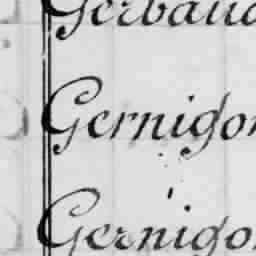 Gerbaud
Gernigon
Gernigon